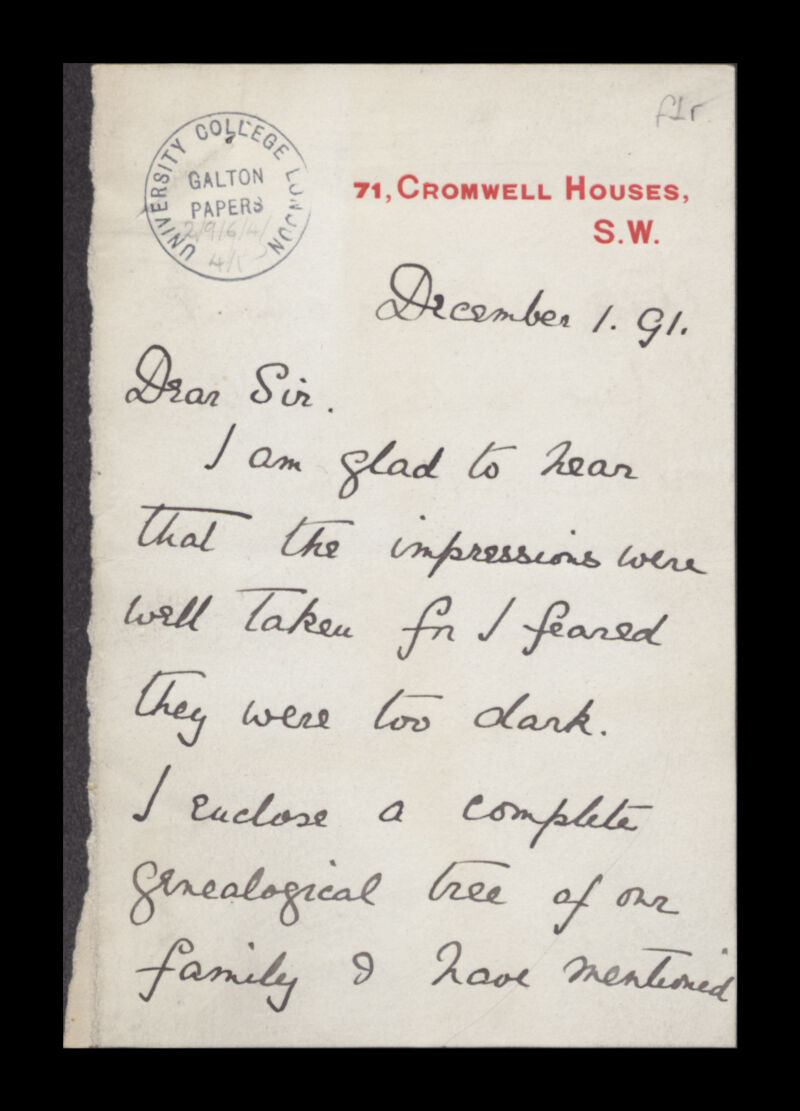 f1r
UNIVERSITY COLLEGE LONDON
GALTON
PAPERS
2/9/6/4/
71, CROMWELL HOUSES,
S.W.
December 1. 91.
Dear Sir.
I am glad to hear
that the impressions were
well taken for I feared
they were too dark.
I enclose a complete
genealogical tree of our
family & have mentioned